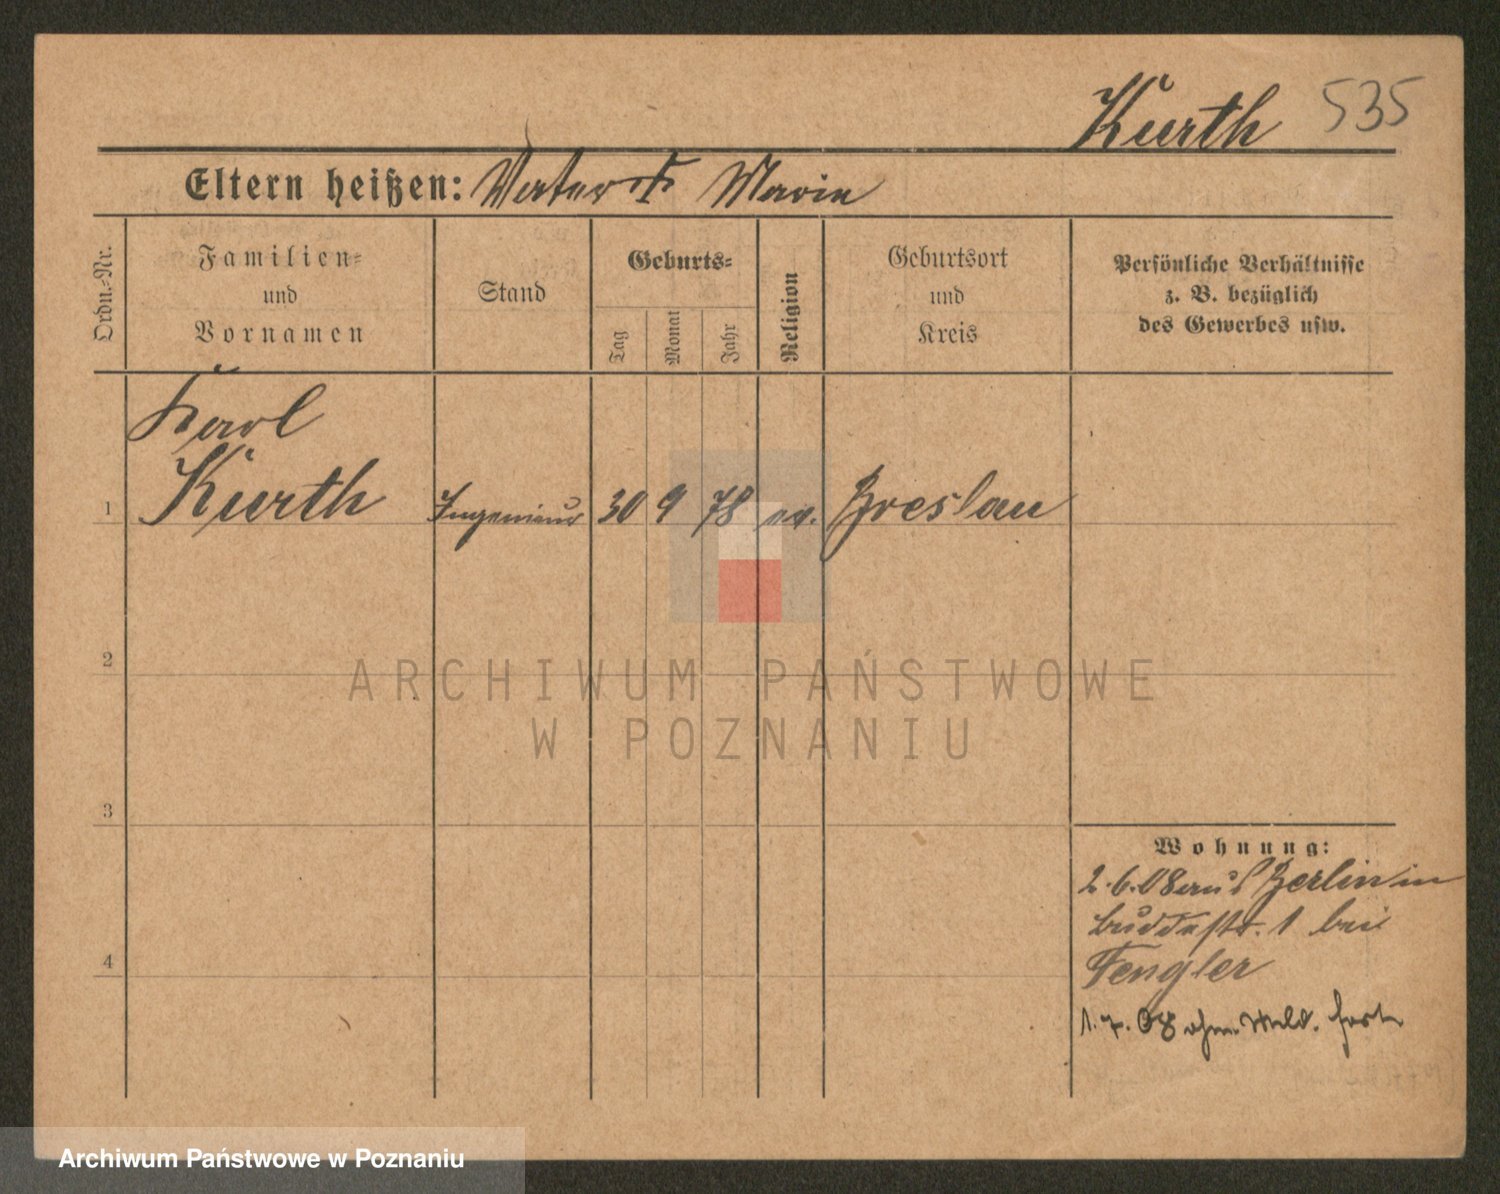 Kurth 535
Eltern heißen: Vater † Marie
Ordn.-Nr.
Familien-
und
Vornamen
Stand
Geburts-
Tag
Monat
Jahr
Religion
Geburtsort
und
Kreis
Persönliche Verhältnisse
z. B. bezüglich
des Gewerbes usw.
Karl
1 Kurth Ingenieur 30 9 78 ev. Breslau
2
ARCHIWUM PAŃSTWOWE
W POZNANIU
3
Wohnung:
2.6.08 aus Berlin in
Buddestr. 1 bei
Fengler
4
1.7.08 ohne Meld. fort
Archiwum Państwowe w Poznaniu